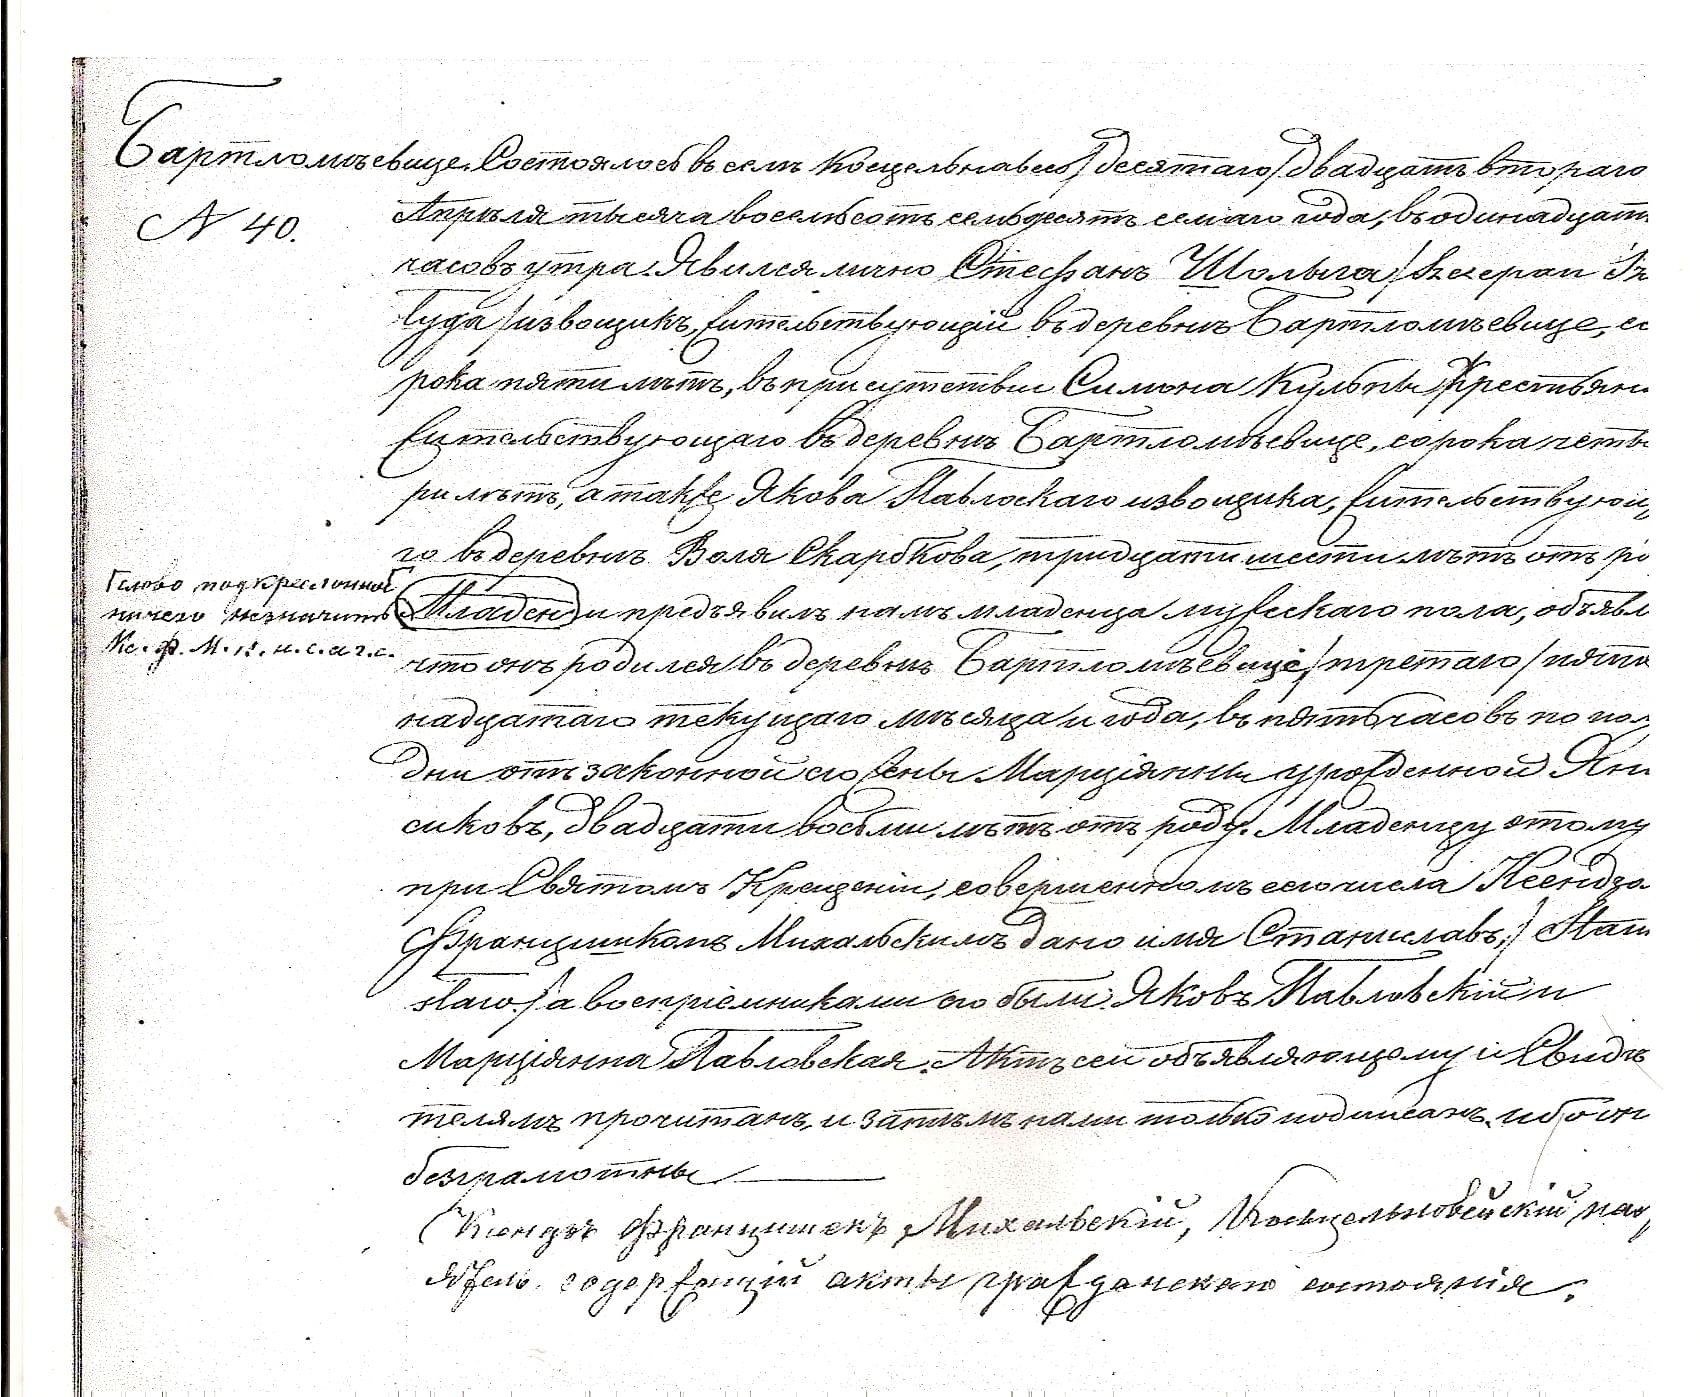 Бартломѣевице. Состоялось въ селѣ Косцельнавесь /десятаго/ двадцать втораго
N 40.
Апрѣля тысяча восемьсотъ семьдесятъ семаго года, въ одинадцать
часовъ утра. Явился лично Стефанъ Шолыга /Szczepan Sz
ługa/ извощикъ, жительствующій въ деревнѣ Бартломѣевице, со
рока пяти лѣтъ, въ присутствіи Симона Кульпы Крестьяни
жительствующаго въ деревнѣ Бартломѣевице, сорока четы
ри лѣтъ, а также Якова Павлоскаго извощика, жительствующ
го въ деревнѣ Воля Скарбкова, тридцати шести лѣтъ отъ ро
Слово подкресленное
ничего незначитъ
Кс. Ф. М. п. н. с. а. г. с.
Младен и предъявилъ намъ младенца мужескаго пола, объявл
что онъ родился въ деревнѣ Бартломѣевице /третаго/ пятна
надцатаго текущаго мѣсяца и года, въ пять часовъ по пол
дни отъ законной его жены Марціянны урожденной Ян
сиковъ, двадцати восьми лѣтъ отъ роду. Младенцу этому
при Святомъ Крещеніи, совершенномъ сего числа Ксендзо
Францишкомъ Михальскимъ дано имя Станиславъ, / Stani
sław / а воспріемниками его были: Яковъ Павловскій и
Марціянна Павловская. Актъ сей объявляющему и Свидѣ
телямъ прочитанъ, и затѣмъ нами только подписанъ, ибо он
безграмотны
Ксендзъ Францишекъ Михальскій, Косцельновейскій нас
содержащій акты гражданскаго состоянія.